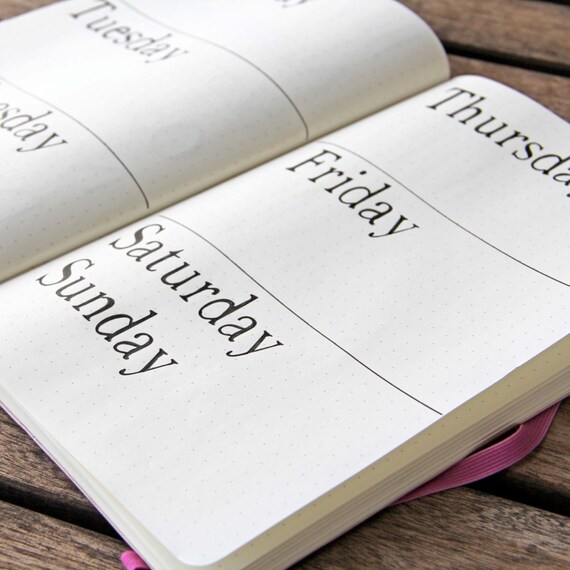 Tuesday
esday
Thursda
Friday
Saturday
Sunday